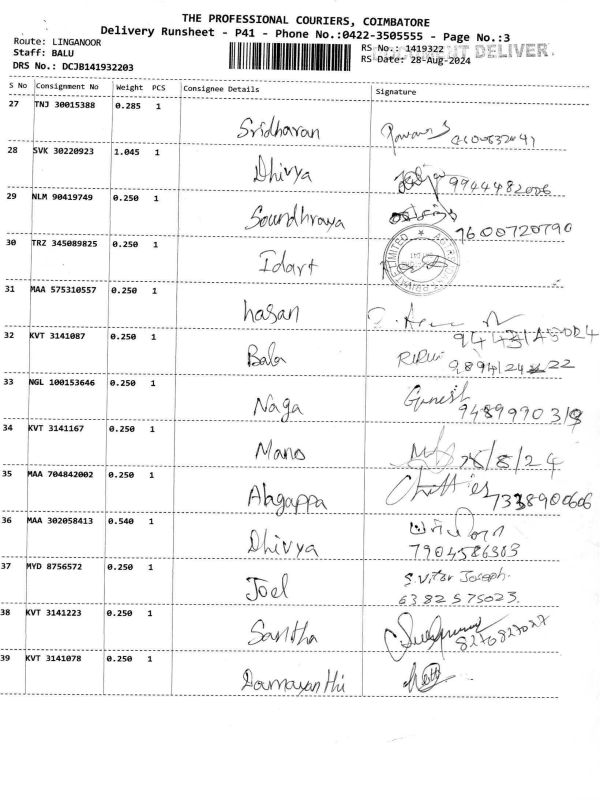 THE PROFESSIONAL COURIERS, COIMBATORE
Delivery Runsheet - P41 - Phone No.:0422-3505555 - Page No.:3
Route: LINGANOOR
Staff: BALU
DRS No.: DCJB141932203
RS No.: 1419322
RS Date: 28-Aug-2024
DELIVER
S No Consignment No Weight PCS Consignee Details Signature
27 TNJ 30015388 0.285 1 Sridharan
28 SVK 30220923 1.045 1 Dhivya 9944482006
29 NLM 90419749 0.250 1 Soundhraya 7600720790
30 TRZ 345089825 0.250 1 Idart
PRIVATE LIMITED
31 MAA 575310557 0.250 1 hasan
32 KVT 3141087 0.250 1 Bala
33 NGL 100153646 0.250 1 Naga Ganesh
34 KVT 3141167 0.250 1 Mano /8/24
35 MAA 704842002 0.250 1 Alagappa 7338900606
36 MAA 302058413 0.540 1 Dhivya
7904586303
37 MYD 8756572 0.250 1 Joel S. Vitor Joseph.
6382575023
38 KVT 3141223 0.250 1 Santha 8270827027
39 KVT 3141078 0.250 1 Damayanthi